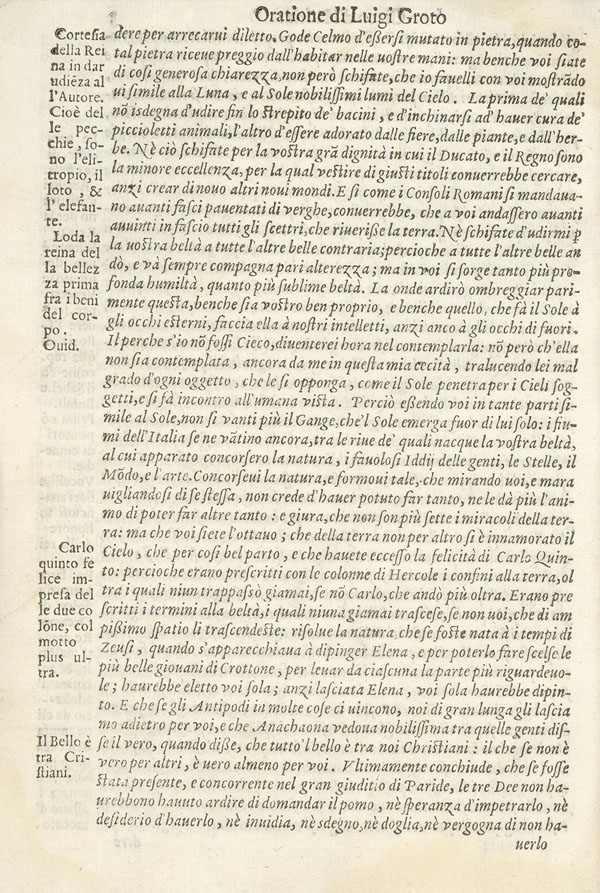 Oratione di Luigi Groto
Cortesia
della Rei
na in dar
udiẽza al
l'Autore.
Cioè del
le pec-
chie, so-
no l'eli-
tropio, il
loto, &
l'elefan-
te.
Loda la
reina del
la bellez
za prima
fra i beni
del cor-
po.
Ouid.
Carlo
quinto fe
lice im-
presa del
le due co
lõne, col
motto
plus ul-
tra.
Il Bello è
tra Cri-
stiani.
dere per arrecarui diletto. Gode Celmo d'eßersi mutato in pietra, quando co-
tal pietra riceue preggio dall'habitar nelle vostre mani: ma benche voi siate
di cosi generosa chiarezza, non però schifate, che io fauelli con voi mostrãdo
ui simile alla Luna, e al Sole nobilissimi lumi del Cielo. La prima de' quali
nõ isdegna d'udire fin lo strepito de' bacini, e d'inchinarsi ad hauer cura de'
piccioletti animali, l'altro d'essere adorato dalle fiere, dalle piante, e dall'her-
be. Nè ciò schifate per la vostra grã dignità in cui il Ducato, e il Regno sono
la minore eccellenza, per la qual vestire di giusti titoli conuerrebbe cercare,
anzi crear di nouo altri noui mondi. E si come i Consoli Romani si mandaua-
no auanti fasci pauentati di verghe, conuerrebbe, che a voi andassero auanti
auuinti in fascio tutti gli scettri, che riueriße la terra. Nè schifate d'udirmi p
la uostra beltà a tutte l'altre belle contraria; percioche a tutte l'altre belle an
dò, e và sempre compagna pari alterezza; ma in voi si forge tanto più pro-
fonda humiltà, quanto più sublime beltà. La onde ardirò ombreggiar pari-
mente questa, benche sia vostro ben proprio, e benche quello, che fà il Sole à
gli occhi esterni, faccia ella à nostri intelletti, anzi anco à gli occhi di fuori.
Il perche s'io nõ fossi Cieco, diuenterei hora nel contemplarla: nõ però ch'ella
non sia contemplata, ancora da me in questa mia cecità, tralucendo lei mal
grado d'ogni oggetto, che le si opponga, come il Sole penetra per i Cieli sog-
getti, e si fà incontro all'umana vista. Perciò eßendo voi in tante parti si-
mile al Sole, non si vanti più il Gange, che'l Sole emerga fuor di lui solo: i fiu-
mi dell'Italia se ne vãtino ancora, tra le riue de' quali nacque la vostra beltà,
al cui apparato concorsero la natura, i fauolosi Iddij delle genti, le Stelle, il
Mõdo, e l'arte. Concorseui la natura, e formoui tale, che mirando uoi, e mara
uigliandosi di se stessa, non crede d'hauer potuto far tanto, ne le dà più l'ani-
mo di poter far altre tanto: e giura, che non son più sette i miracoli della ter-
ra: ma che voi siete l'ottauo; che della terra non per altro si è innamorato il
Cielo, che per cosi bel parto, e che hauete eccesso la felicità di Carlo Quin-
to: percioche erano prescritti con le colonne di Hercole i confini alla terra, ol
tra i quali niun trappassò giamai, se nõ Carlo, che andò più oltra. Erano pre
scritti i termini alla beltà, i quali niuna giamai trascese, se non uoi, che di am
pißimo spatio li trascendeste: risolue la natura che se foste nata à i tempi di
Zeusi, quando s'apparecchiaua à dipinger Elena, e per poterlo fare scelse le
più belle giouani di Crottone, per leuar da ciascuna la parte più riguardeuo-
le; haurebbe eletto voi sola; anzi lasciata Elena, voi sola haurebbe dipin-
to. E che se gli Antipodi in molte cose ci uincono, noi di gran lunga gli lascia
mo adietro per voi, e che Anachaona vedoua nobilissima tra quelle genti dis-
se il vero, quando diße, che tutto'l bello è tra noi Christiani: il che se non è
vero per altri, è uero almeno per voi. Vltimamente conchiude, che se fosse
stata presente, e concorrente nel gran giuditio di Paride, le tre Dee non ha-
urebbono hauuto ardire di domandar il pomo, nè speranza d'impetrarlo, nè
desiderio d'hauerlo, nè inuidia, nè sdegno, nè doglia, nè vergogna di non ha-
uerlo